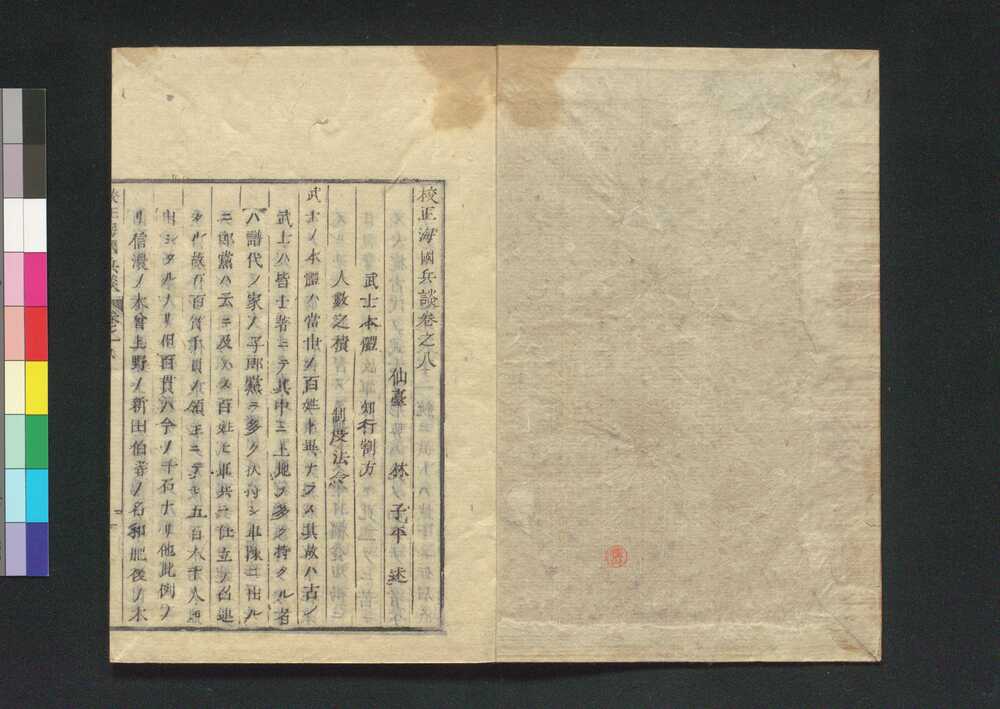 校正海國兵談卷之八
仙臺 林 子平 述
武士本體 知行割方
人數之積 制度法令
武士ノ本體ハ當世ノ百姓ト異ナラス其故ハ古シ
武士ハ皆士著ニテ其中ニ土地ヲ多ク持タル者
ハ譜代ノ家ノ子郎黨ヲ多ク扶持シ軍陳ニ出ル
ニ郎黨ハ云ニ及ハス百姓ヒ軍兵ニ仕立テ召連
タル故百貫千貫ノ領主ニテ五百木千人
出シタル人リ但百貫ハ今ノ千石ナリ他此例ノ
リ信濃ノ木曾上野ノ新田伯耆ノ名和肥後ノ木